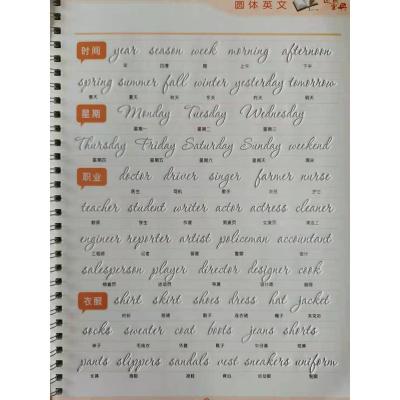 圆体英文
时间 year season week morning afternoon
年 四季 周 上午 下午
spring summer fall winter yesterday tomorrow
春天 夏天 秋天 冬天 昨天 明天
星期 Monday Tuesday Wednesday
星期一 星期二 星期三
Thursday Friday Saturday Sunday weekend
星期四 星期五 星期六 星期天 周末
职业 doctor driver singer farmer nurse
医生 司机 歌手 农民 护士
teacher student writer actor actress cleaner
教师 学生 作家 男演员 女演员 清洁工
engineer reporter artist policeman accountant
工程师 记者 警察 会计
salesperson player director designer cook
销售员 运动员 导演 设计师 厨师
衣服 shirt skirt shoes dress hat jacket
衬衫 短裙 鞋子 连衣裙 帽子 夹克衫
socks sweater coat boots jeans shorts
袜子 毛线衣 外套 靴子 牛仔裤 短裤
pants slippers sandals vest sneakers uniform
长裤 拖鞋 凉鞋 背心 运动鞋 制服